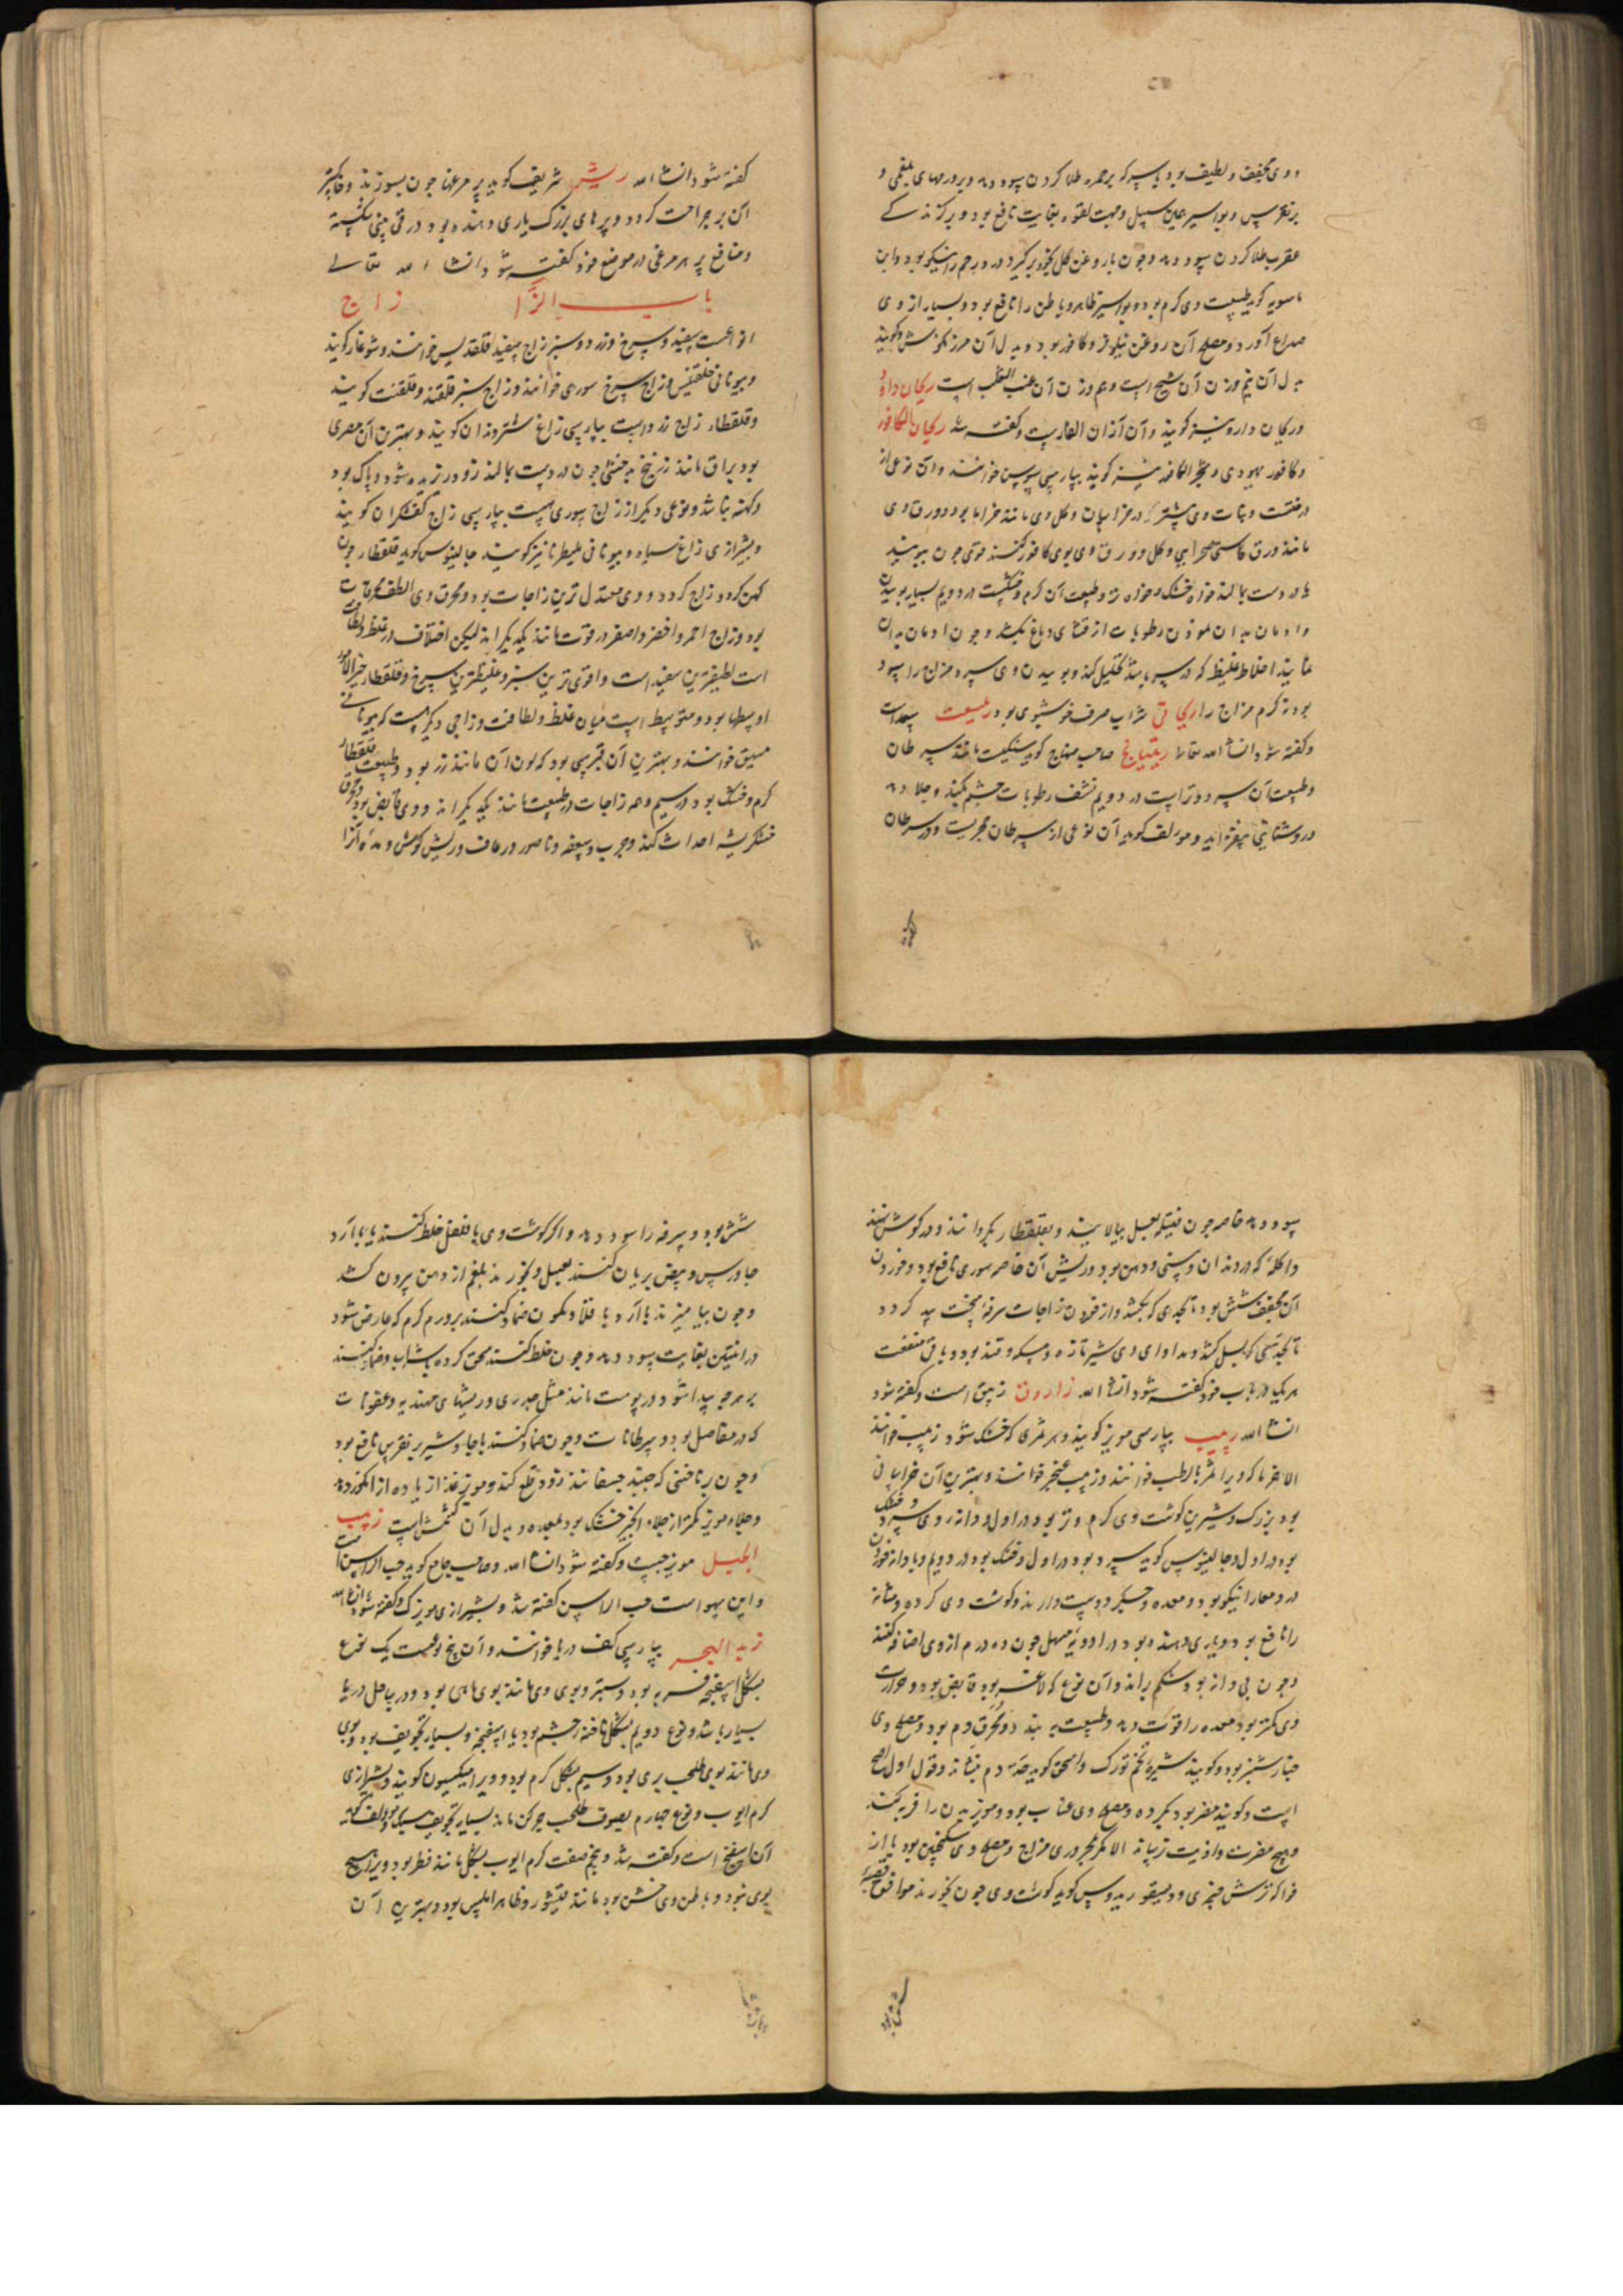 و وی مجفف و لطیف بود با سرکه بر حمره طلا کردن سود دهد و بر ورمهای بلغمی و
بر نقرس و بواسیر علی سبیل و جهت لقوه بغایت نافع بود و بر گزندگی
عقرب طلا کردن سود دهد و چون با روغن گل بخود برگیرد درد رحم را نیکو بود و ابن
ماسویه گوید طبیعت وی گرم بود و بواسیر ظاهر و باطن را نافع بود و بسیار از وی
صداع آورد و مصلح آن روغن نیلوفر و کافور بود و بدل آن مرزنگوش و گویند
بدل آن نیم وزن آن شیح است و هم وزن آن عنب الثعلب است ریحان داود
و ریحان دارو نیز گویند و آن آذان الفار است و گفته شد ریحان الکافور
و کافور یهودی و شجر الکافور نیز گویند بپارسی سوسن خوانند و آن نوعی از
درختست و نبات وی بیشتر در خراسان و گل وی مانند خزاما بود و ورق وی
مانند ورق کاسنی صحرایی و گل و ورق وی بوی کافور کنند قوی چون ببویند
یا در دست بمالند خواه خشک و خواه تر و طبیعت آن گرم و خشکست در دویم بسیار بوییدن
و ادمان بدان نمودن رطوبات از قنای دماغ بکشد و چون ادمان بدان
نمایند اخلاط غلیظ که در سر باشد تحلیل کند و بوییدن وی سرد مزاج را سود
بود نه گرم مزاج را ریحانی شراب صرف خوشبوی بود رعیعت
و گفته شود انشاء الله تعالی ریتیانج صاحب منهاج گوید سنگیست مانند سرطان
و طبیعت آن سرد و تر است در دویم نشف رطوبات چشم بکند و جلا دهد
و روشنایی بیفزاید و مولف گوید آن نوعی از سرطان بحریست و در سرطان
گفته شود انشاء الله ریش شریف گوید پر مرغها چون بسوزند و خاکستر
آن بر جراحت کرد و پرهای بزرگ یاری دهنده بود در قی بینی شکسته
و منافع پر هر مرغی در موضع خود گفته شود انشاء الله تعالی
باب الزا زاج
انواعست سفید و سرخ و زرد و سبز زاج سفید قلقدیس خوانند و شوغار گویند
و بیونانی خلقتیس و زاج سرخ سوری خوانند و زاج سبز قلقند و قلقنت گویند
و قلقطار زاج زرد است بپارسی زاغ شتر دندان گویند و بهترین آن مصری
بود براق مانند زرنیخ به حیثیتی چون در دست بمالند زود ریزیده شود و پاک بود
و کهنه نباشد و نوعی دیگر از زاج سوری هست بپارسی زاج کفشگران گویند
و بشیرازی زاغ سیاه و بیونانی ملیطرنا نیز گویند جالینوس گوید قلقطار چون
کهن گردد زاج گردد و وی معتدل ترین زاجات بود و محرق وی الطف محرقات
بود و زاج احمر و اخضر و اصفر در قوت مانند یکدیگرانه لیکن اختلاف در غلظ و لطافت
است لطیفترین سفید است و اقوی ترین سبز و غلیظترین سرخ و قلقطار خیر الامور
اوسطها بود و متوسط است میان غلظ و لطافت و زاجی دیگر هست که بیونانی
مسیق خوانند و بهترین آن قبرسی بود که لون آن مانند زر بود و طبیعت قلقطار
گرم و خشک بود در سیم و همه زاجات در طبیعت مانند یکدیگرانه و وی قابض بود و محرق
خشکریشه احداث کند و جرب و سعفه و ناصور و رعاف و ریش گوش و مده آنرا
سود دهد خاصه چون فتیله بعسل بیالایند و بقلقطار بگردانند و در گوش نهند
و اکله که در دندان و بینی و دهن بود و ریش آن خاصه سوری نافع بود و خوردن
آن مجفف شش بود تا بحدی که بکشد و از خوردن زاجات سرفه سخت پیدا گردد
تا بحدیی که بسل کشد و مداوای وی شیر تازه و مسکه و قند بود و باقی منفعت
هر یک در باب خود گفته شود انشاء الله زاروق زیبق است و گفته شود
انشاء الله زبیب بپارسی مویز گویند و هر ثمری که خشک شود زبیب خوانند
الا خرما که ویرا ثمر بالرطب خوانند و زبیب عنجد خوانند و بهترین آن خراسانی
بود بزرگ و شیرین گوشت وی گرم و تر بود در اول و دانه وی سرد و خشک
بود در اول و جالینوس گوید سرد بود در اول و خشک بود در دویم و با دانه خوردن
درد معا را نیکو بود و معده و جگر دوست دارند و گوشت وی گرده و مثانه
را نافع بود و یاری دهنده بود در ادویه مسهل چون ده درم از وی اضافه کنند
و چون بی دانه بود شکم براند و آن نوع که لاغر بود قابض بود و حرارت
وی کمتر بود معده را قوت دهد و طبیعت ببندد و محرق دم بود و مصلح وی
خیار سبز بود و گویند شیره تخم تورک و اسحق گوید حده دم بنشاند و قول اول اصح
است و گویند مضر بود بگرده و مصلح وی عناب بود و مویز بدن را فربه کند
و هیچ مضرت و اذیت نرساند الا مگر محروری مزاج و مصلح وی سکنجبین بود یا از
فواکه ترش چیزی و دیسقوریدوس گوید گوشت وی چون بخورند موافق قصبه
شش بود و سرفه را سود دهد و اگر گوشت وی با فلفل خلط کنند یا با آرد
جاورس و بیض بریان کنند بعسل و بخورند بلغم از دهن بیرون کشد
و چون بیامیزند با آرد باقلا و کمون ضماد کنند بر ورم گرم که عارض شود
در انثیین بغایت سود دهد و چون خلط کنند سحق کرده بشراب و ضماد کنند
بر هرچه پیدا شود در پوست مانند مثل جدری و ریشهای شهدیه و عفونات
که در مفاصل بود و سرطانات و چون ضماد کنند با جاوشیر بر نقرس نافع بود
و چون بر ناخنی که جنبد بچسفانند زود قلع کند و مویز غذا زیاده از انگور دهد
و جلاء مویز کمتر از جلاء انجیر خشک بود بمعده و بدل آن کشمش است زبیب
الجبل مویزجست و گفته شود انشاء الله و صاحب جامع گوید حب الراسن است
و این سهو است حب الراسن گفته شد و بشیرازی مویزک و گفته شود انشاء الله
زبد البحر بپارسی کف دریا خوانند و آن پنج نوعست یک نوع
بشکل اسفنجه فربه بود و ستبر و بوی وی مانند بوی ماهی بود و در ساحل دریا
بسیار باشد و نوع دویم بشکل ناخنه چشم بود یا اسفنجه و بسیار تجویف بود و بوی
وی مانند بوی طحلب بری بود و سیم بشکل کرم بود و ویرا میکسیون گویند و بشیرازی
کرم ایوب و نوع چهارم بصوف طحلب چرکن ماند بسیار تجویف سبک و مولف گوید
آن اسفنج است و گفته شد و پنجم صفت کرم ایوب بشکل مانند فطر بود و ویرا هیچ
بوی نبود و باطن وی خشن بود مانند قیشور و ظاهر املس بود و بهترین آن